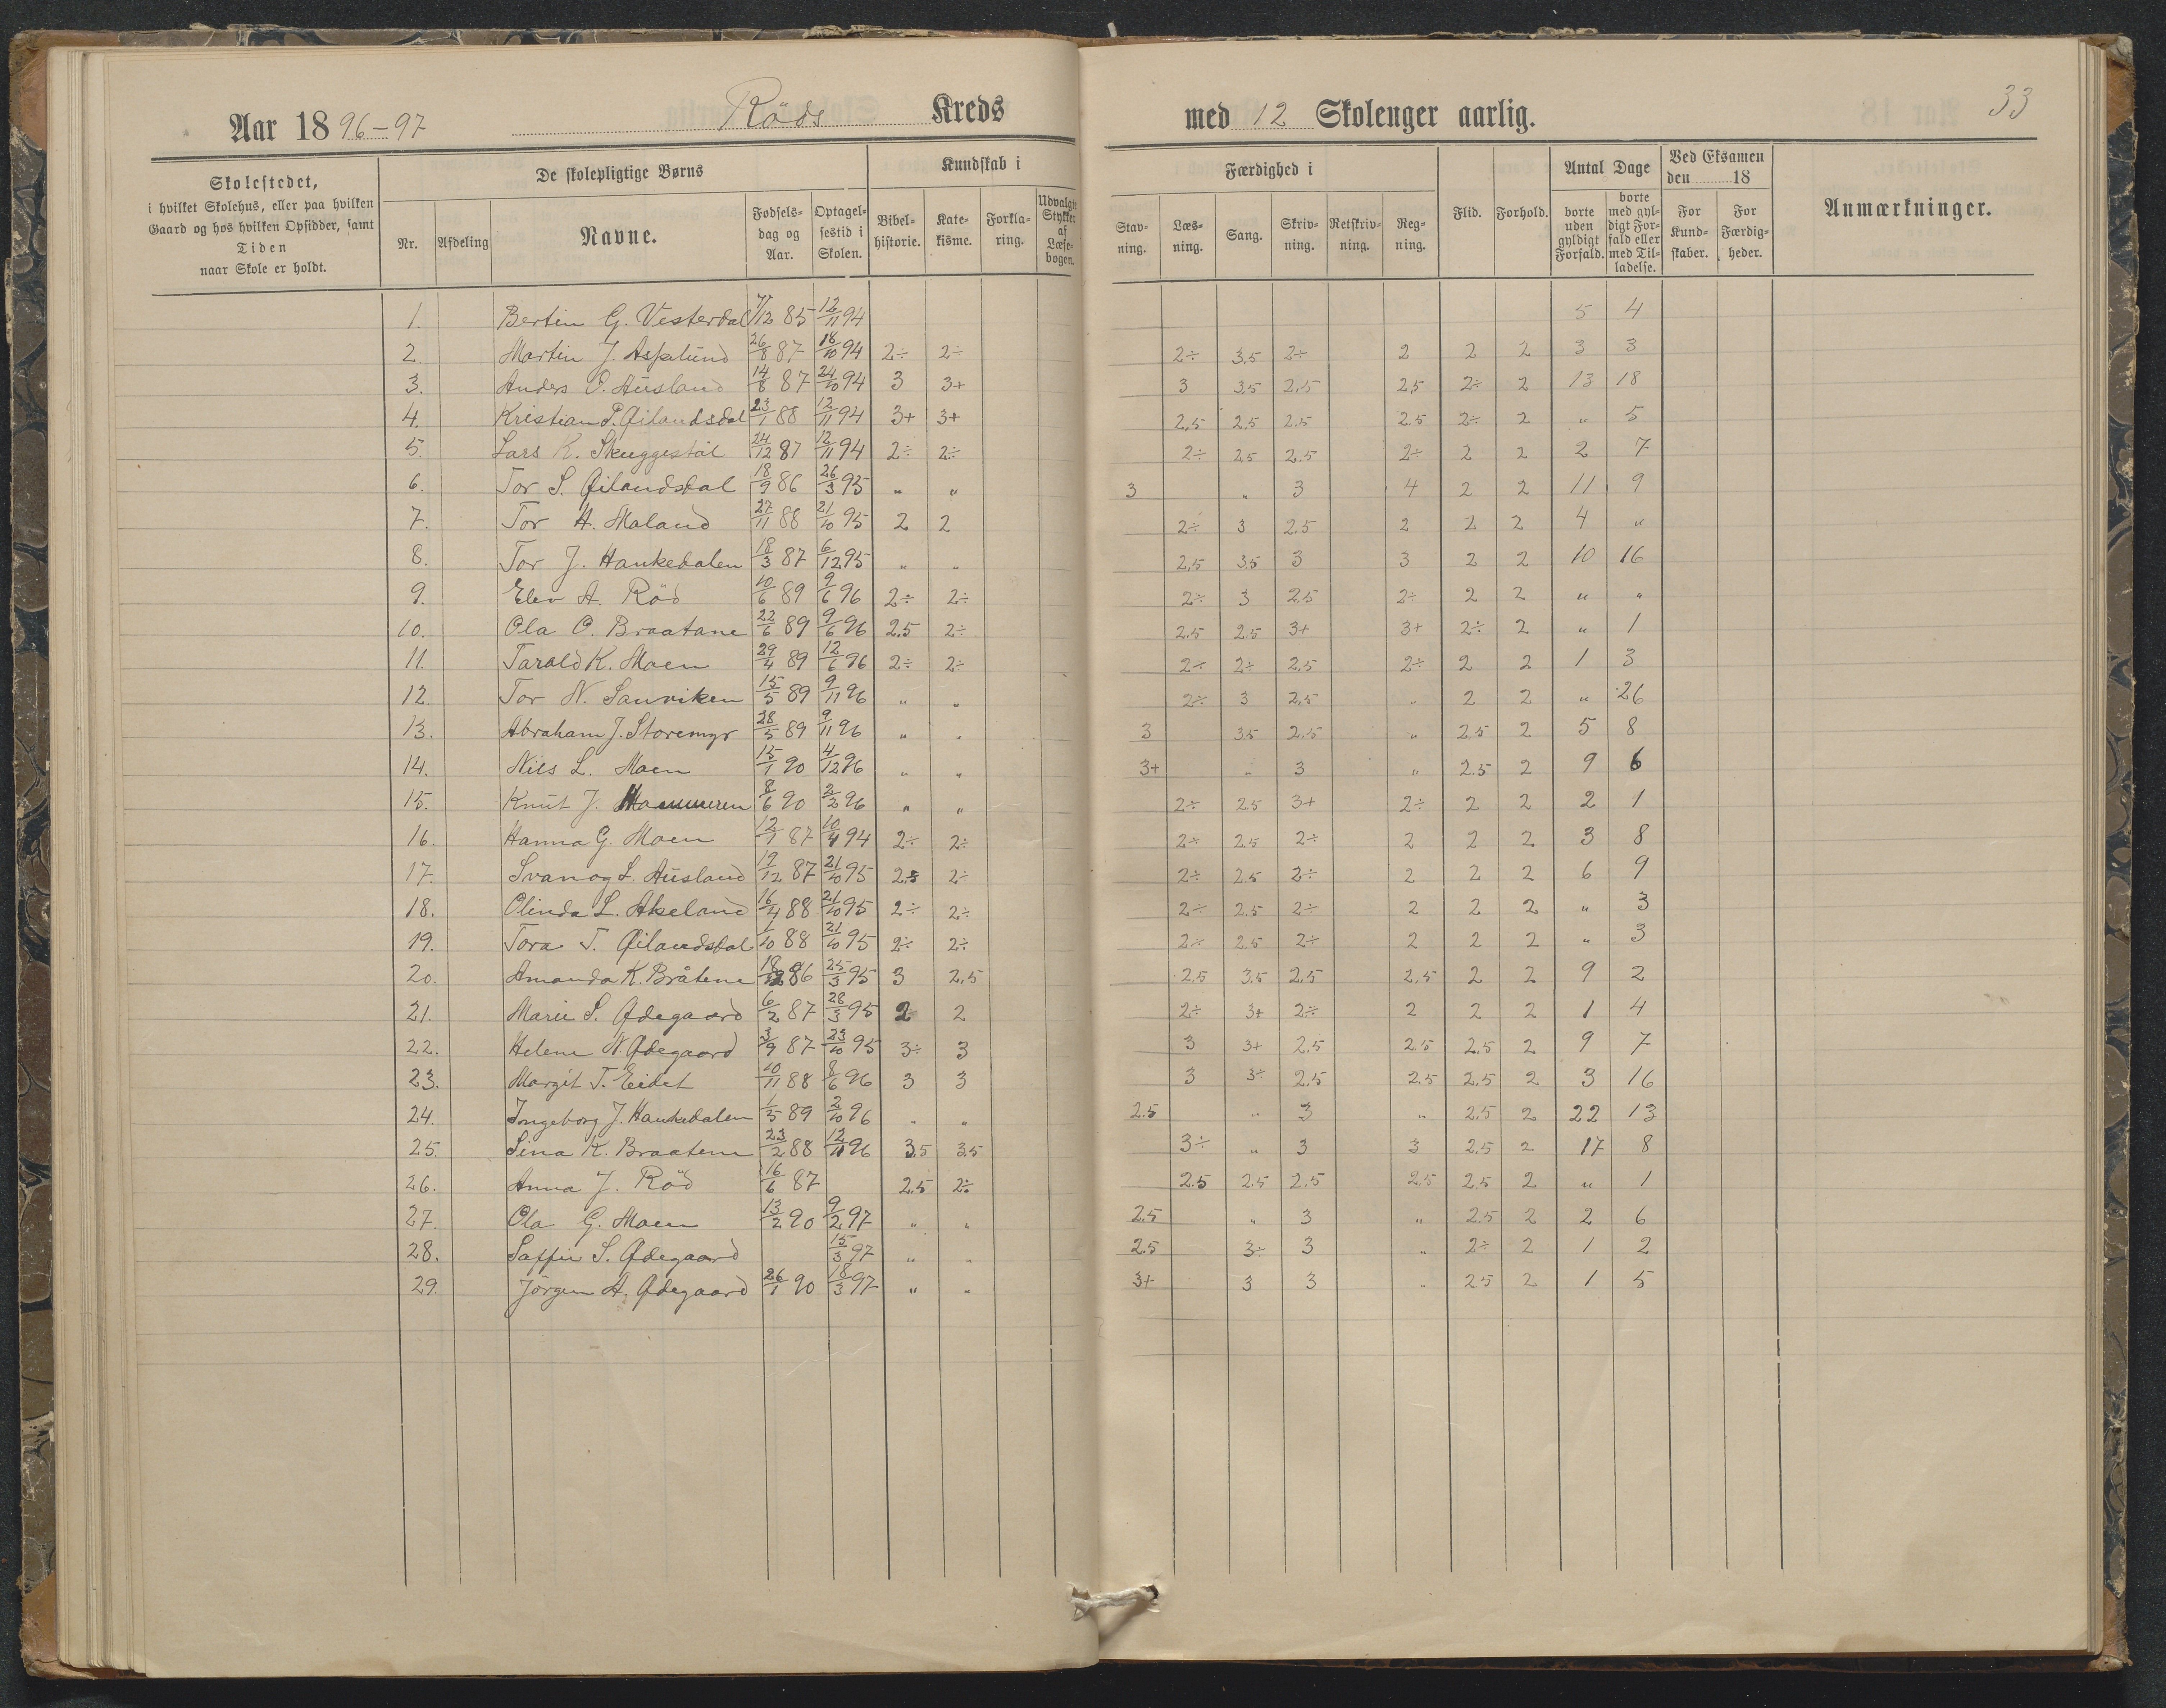 Aar 1896-97 Röds Kreds med 12 Skoleuger aarlig. 33
Skolestedet, i hvilket Skolehus, eller paa hvilken Gaard og hos hvilken Opsidder, samt Tiden naar Skole er holdt.
De skolepligtige Børns
Nr. Afdeling Navne. Fødselsdag og Aar. Optagelsestid i Skolen.
Kundskab i
Bibelhistorie. Katekisme. Forklaring. Udvalgte Stykker af Læsebogen.
Færdighed i
Stavning. Læsning. Sang. Skrivning. Retskrivning. Regning.
Flid. Forhold.
Antal Dage
borte uden gyldigt Forfald. borte med gyldigt Forfald eller med Tilladelse.
Ved Eksamen den 18
For Kundskaber. For Færdigheder.
Anmærkninger.
1. Bertin G. Vesterdal 7/12 85 12/11 94 5 4
2. Martin J. Asplund 26/8 87 18/10 94 2÷ 2÷ 2÷ 3,5 2÷ 2 2 2 3 3
3. Anders O. Ausland 14/8 87 24/10 94 3 3+ 3 3,5 2,5 2,5 2÷ 2 13 18
4. Kristian P. Øilandsdal 23/1 88 12/11 94 3+ 3+ 2,5 2,5 2.5 2.5 2÷ 2 " 5
5. Lars K. Skuggestøl 24/12 87 12/11 94 2÷ 2÷ 2÷ 2,5 2.5 2÷ 2 2 2 7
6. Tor S. Øilandsdal 18/9 86 26/3 95 " " 3 " 3 4 2 2 11 9
7. Tor H. Maland 27/11 88 21/10 95 2 2 2÷ 3 2.5 2 2 2 4 "
8. Tor J. Haukedalen 18/3 87 6/12 95 " " 2,5 3,5 3 3 2 2 10 16
9. Elev A. Röd 10/6 89 9/6 96 2÷ 2÷ 2÷ 3 2,5 2÷ 2 2 " "
10. Ola O. Braatane 22/6 89 9/6 96 2,5 2÷ 2.5 2.5 3+ 3+ 2÷ 2 " 1
11. Tarald K. Moen 29/4 89 12/6 96 2÷ 2÷ 2÷ 2÷ 2,5 2÷ 2 2 1 3
12. Tor N. Sanviken 15/5 89 9/11 96 " " 2÷ 3 2,5 " 2 2 " 26
13. Abraham J. Storemyr 28/5 89 9/11 96 " " 3 3,5 2,5 " 2.5 2 5 8
14. Nils L. Moen 15/1 90 4/12 96 " " 3+ " 3 " 2.5 2 9 6
15. Knut J. 8/6 90 2/2 96 " " 2÷ 2.5 3+ 2÷ 2 2 2 1
16. Hanna G. Moen 12/1 87 10/4 94 2÷ 2÷ 2÷ 2.5 2÷ 2 2 2 3 8
17. Svanog L. Ausland 19/12 87 21/10 95 2,5 2÷ 2÷ 2.5 2÷ 2 2 2 6 9
18. Olinda L. Akeland 16/4 88 21/10 95 2÷ 2÷ 2÷ 2.5 2÷ 2 2 2 " 3
19. Tora T. Øilandsdal 1/10 88 21/10 95 2÷ 2÷ 2÷ 2,5 2÷ 2 2 2 " 3
20. Amanda K. Bråtene 18/12 86 25/3 95 3 2,5 2,5 3.5 2,5 2,5 2 2 9 2
21. Marie S. Ødegaard 6/2 87 28/3 95 2 2 2÷ 3+ 2÷ 2 2 2 1 4
22. Helene N. Ødegaard 3/9 87 23/10 95 3÷ 3 3 3+ 2.5 2.5 2,5 2 9 7
23. Margit T. Eidet 10/11 88 8/6 96 3 3 3 3÷ 2,5 2.5 2,5 2 3 16
24. Ingeborg J. Haukedalen 1/5 89 2/10 96 " " 2.5 " 3 " 2,5 2 22 13
25. Sina K. Braatene 23/2 88 12/11 96 3,5 3,5 3÷ " 3 3 2,5 2 17 8
26. Anna J. Röd 16/6 87 2,5 2÷ 2.5 2,5 2,5 2,5 2,5 2 " 1
27. Ola G. Moen 13/2 90 9/2 97 " " 2,5 " 3 " 2.5 2 2 6
28. Saffie S. Ødegaard 15/3 97 " " 2.5 3÷ 3 " 2÷ 2 1 2
29. Jörgen A. Ødegaard 26/1 90 18/3 97 " " 3+ 3 3 " 2.5 2 1 5